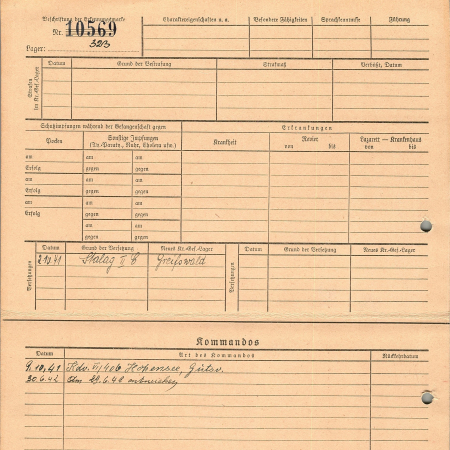 Beschriftung der Erkennungsmarke Charaktereigenschaften u. a. Besondere Fähigkeiten Sprachkenntnisse Führung
Nr. 10569
323
Lager:
Strafen im Kr.-Gef.-Lager Datum Grund der Bestrafung Strafmaß Verbüßt, Datum
Schutzimpfungen während der Gefangenschaft gegen Erkrankungen
Pocken Sonstige Impfungen (Ty.-Paraty., Ruhr, Cholera usw.) Krankheit Revier von bis Lazarett — Krankenhaus von bis
am am am
Erfolg gegen gegen
am am am
Erfolg gegen gegen
am am am
Erfolg gegen gegen
am am
gegen gegen
Versetzungen Datum Grund der Versetzung Neues Kr.-Gef.-Lager Versetzungen Datum Grund der Versetzung Neues Kr.-Gef.-Lager
Stalag II C Greifswald
Kommandos
Datum Art des Kommandos Rückkehrdatum
9.10.41 Kdo. Hohensee, Gutsv.
30.6.42 29.6.42 entwichen